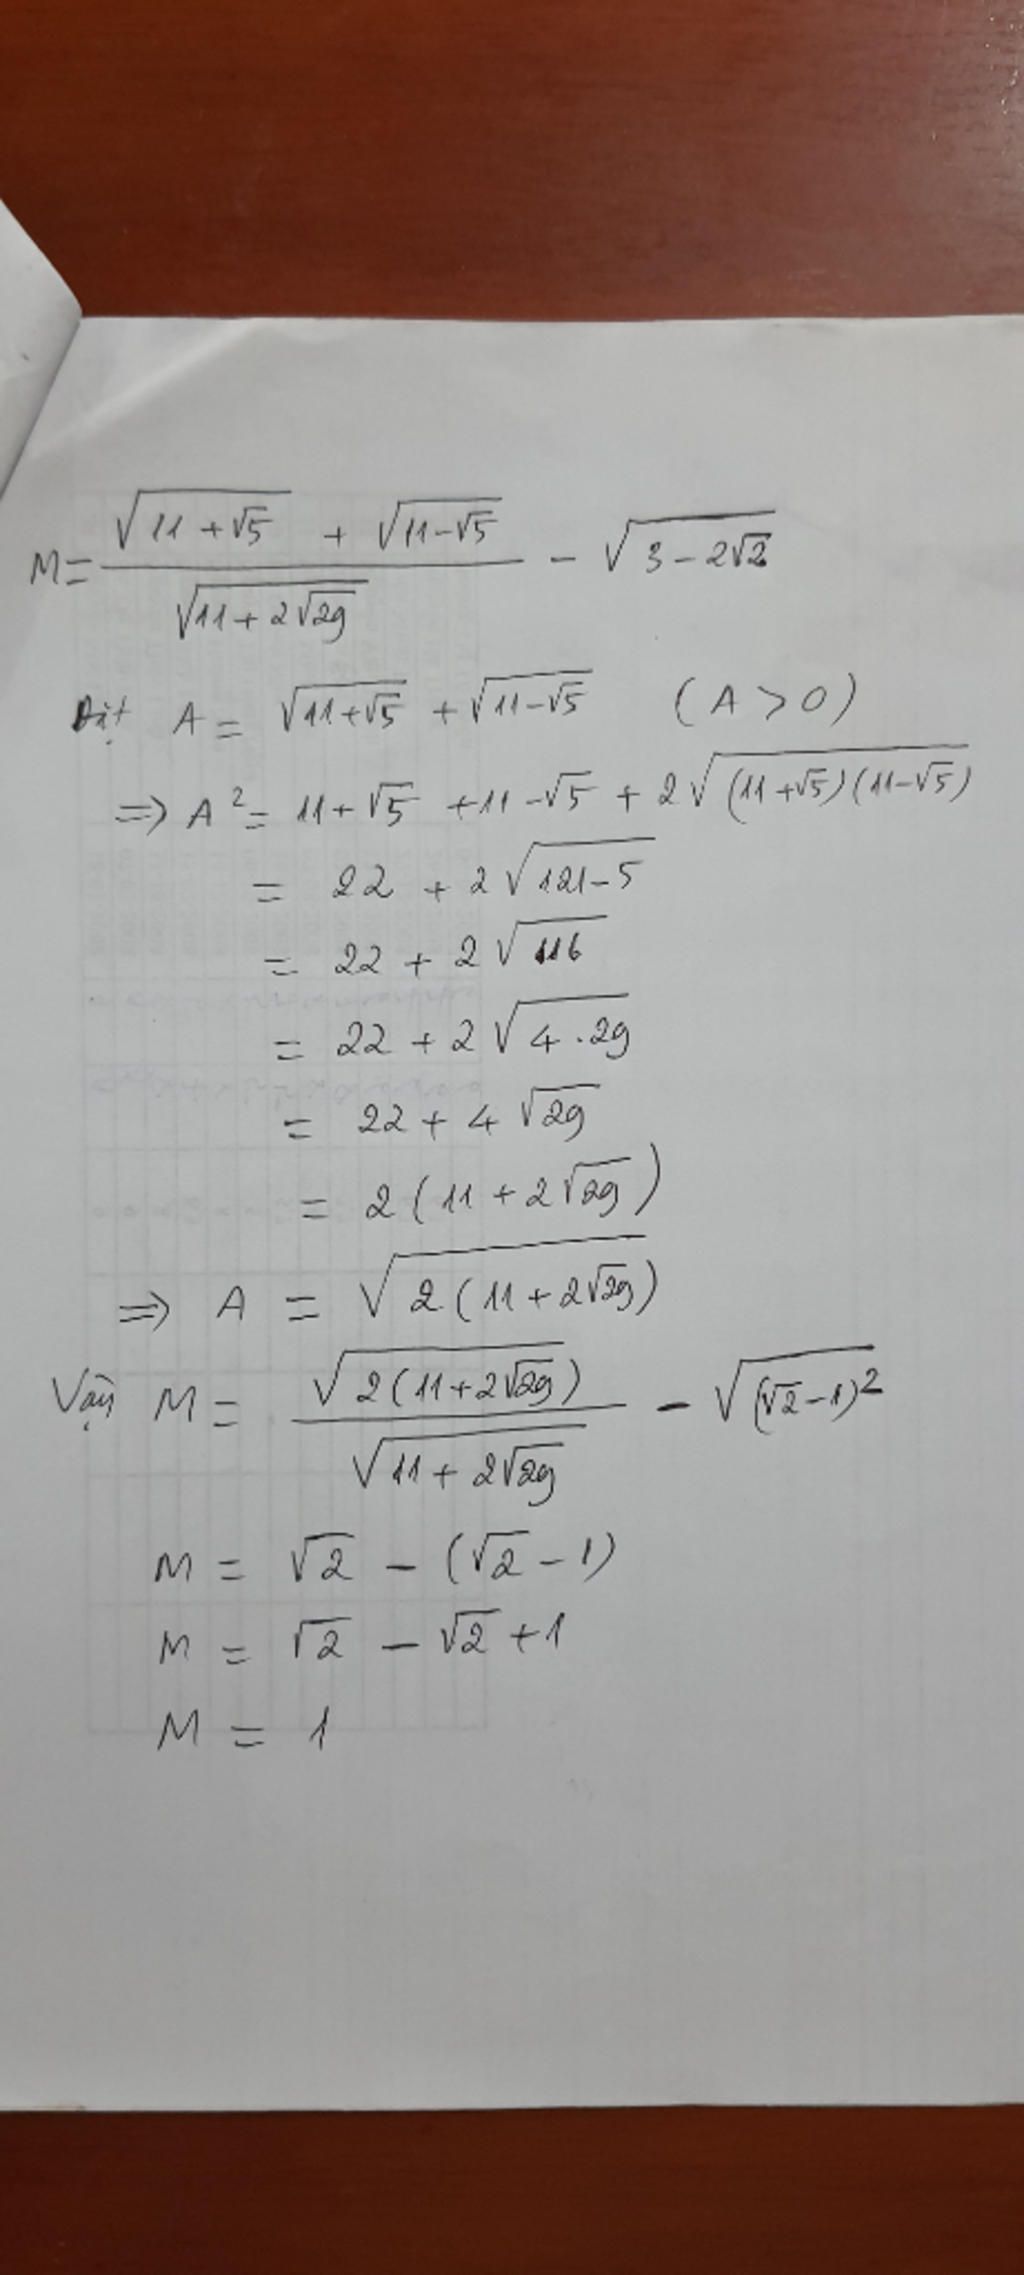 M = (√(11+√5) + √(11-√5)) / √(11+2√29) - √(3-2√2)
Đặt A = √(11+√5) + √(11-√5) (A > 0)
=> A² = 11+√5 + 11-√5 + 2√((11+√5)(11-√5))
= 22 + 2√(121-5)
= 22 + 2√116
= 22 + 2√(4.29)
= 22 + 4√29
= 2(11+2√29)
=> A = √(2(11+2√29))
Vậy M = √(2(11+2√29)) / √(11+2√29) - √((√2-1)²)
M = √2 - (√2-1)
M = √2 - √2 + 1
M = 1